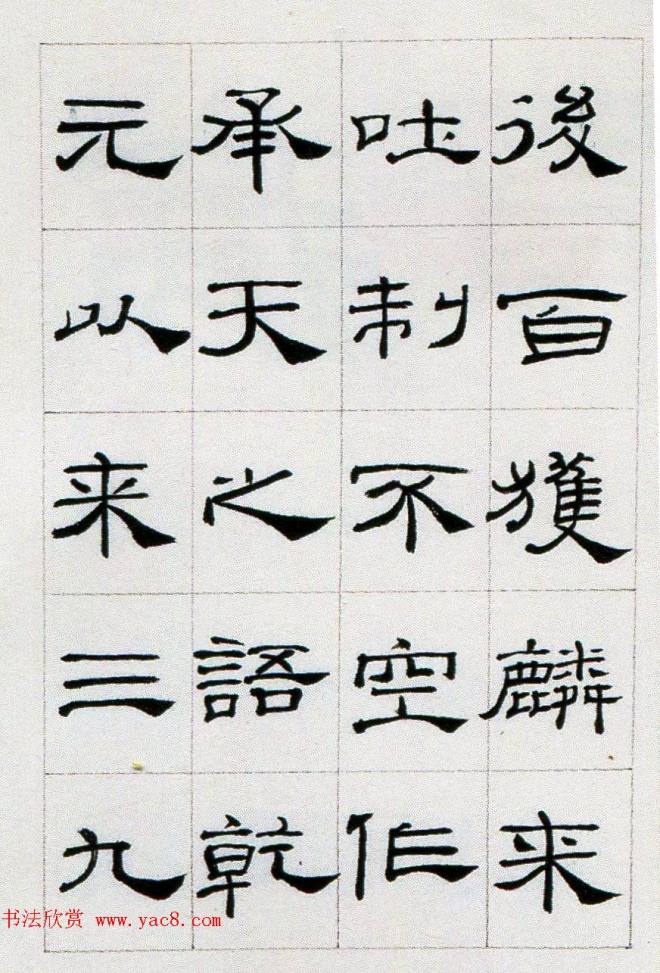 後百獲麟来
吐制不空作
承天之語乾
元以来三九
书法欣赏 www.yac8.com